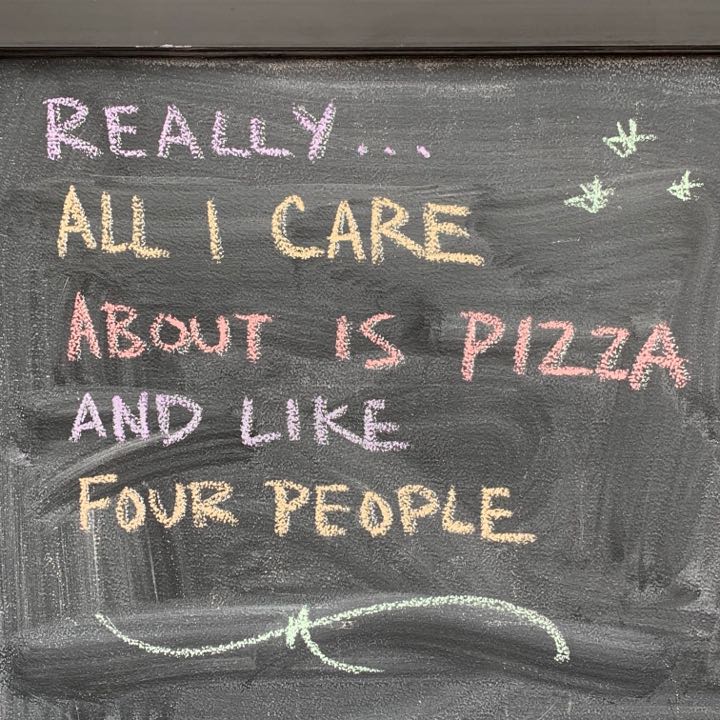 REALLY...
ALL I CARE
ABOUT IS PIZZA
AND LIKE
FOUR PEOPLE